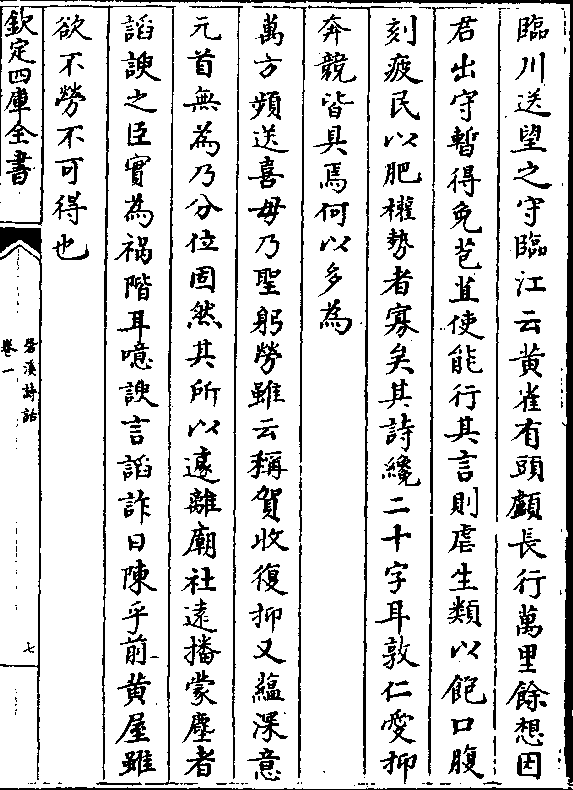 臨川送望之守臨江云黄雀有頭顱長行萬里餘想因
君出守暫得免苞苴使能行其言則虐生類以飽口腹
刻疲民以肥權勢者寡矣其詩纔二十字耳敦仁愛抑
奔競皆具焉何以多為
萬方頻送喜毋乃聖躬勞雖云稱賀收復抑又蘊深意
元首無為乃分位固然其所以遽離廟社逺播蒙塵者
謟諛之臣實為禍階耳噫諛言謟詐日陳乎前黄屋雖
欲不勞不可得也
欽定四庫全書
䂬溪詩話
卷一
七